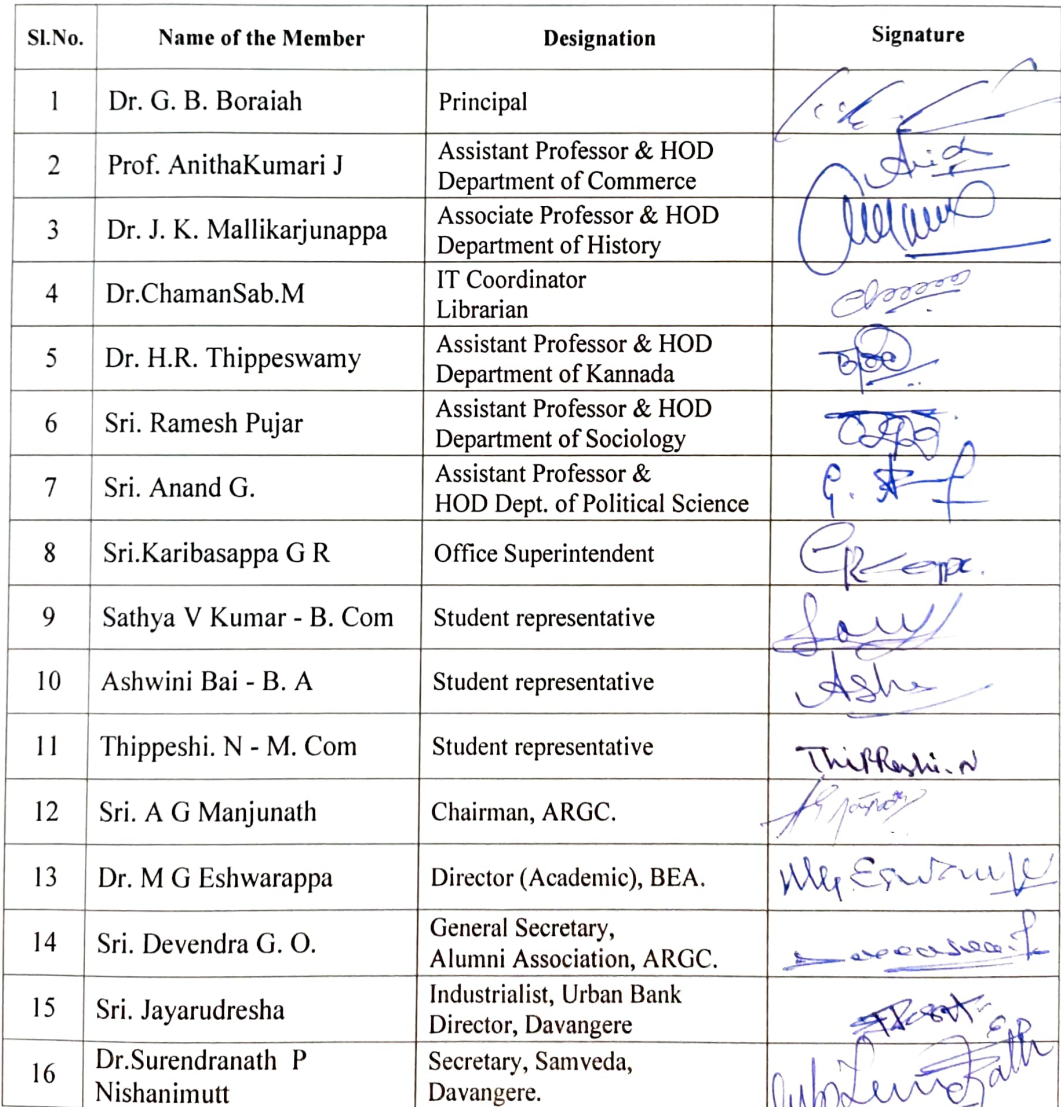 Sl.No. Name of the Member Designation Signature
1 Dr. G. B. Boraiah Principal
2 Prof. AnithaKumari J Assistant Professor & HOD
Department of Commerce
3 Dr. J. K. Mallikarjunappa Associate Professor & HOD
Department of History
4 Dr.ChamanSab.M IT Coordinator
Librarian
5 Dr. H.R. Thippeswamy Assistant Professor & HOD
Department of Kannada
6 Sri. Ramesh Pujar Assistant Professor & HOD
Department of Sociology
7 Sri. Anand G. Assistant Professor &
HOD Dept. of Political Science
8 Sri.Karibasappa G R Office Superintendent
9 Sathya V Kumar - B. Com Student representative
10 Ashwini Bai - B. A Student representative
11 Thippeshi. N - M. Com Student representative Thippeshi. N
12 Sri. A G Manjunath Chairman, ARGC.
13 Dr. M G Eshwarappa Director (Academic), BEA.
14 Sri. Devendra G. O. General Secretary,
Alumni Association, ARGC.
15 Sri. Jayarudresha Industrialist, Urban Bank
Director, Davangere
16 Dr.Surendranath P Secretary, Samveda,
Nishanimutt Davangere.